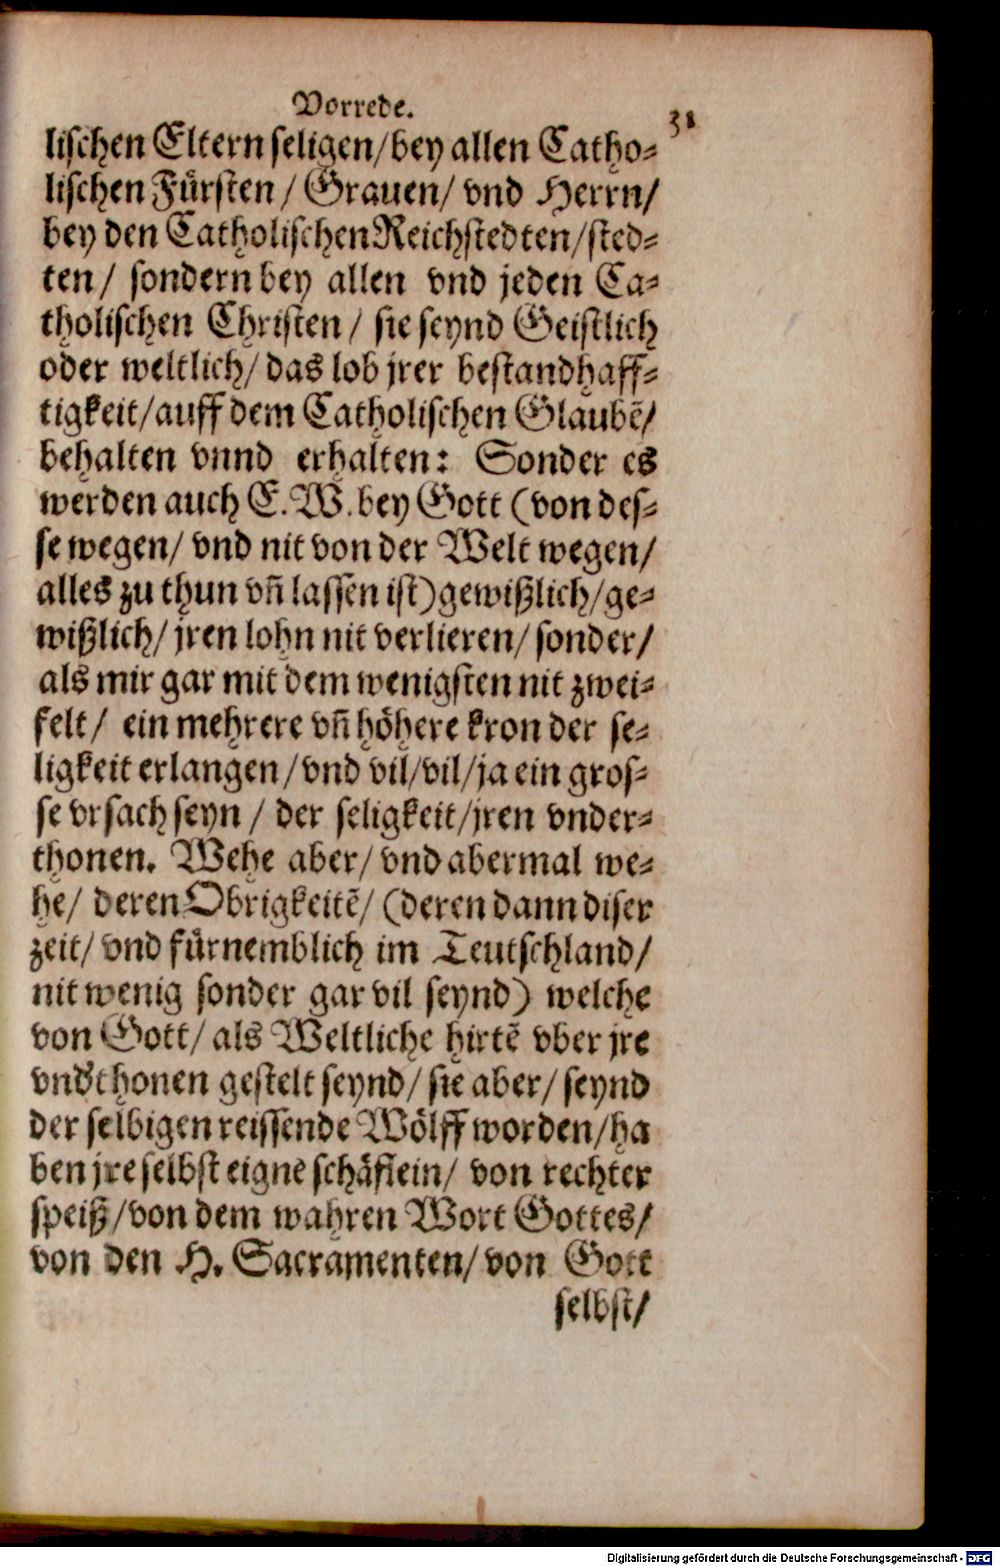 Vorrede.
31
lischen Eltern seligen/bey allen Catho-
lischen Fürsten / Grauen/ vnd Herrn/
bey den Catholischen Reichstedten/sted-
ten / sondern bey allen vnd jeden Ca-
tholischen Christen / sie seynd Geistlich
oder weltlich/ das lob jrer bestandhaff-
tigkeit/auff dem Catholischen Glaubẽ/
behalten vnnd erhalten: Sonder es
werden auch E.W. bey Gott (von des-
se wegen/ vnd nit von der Welt wegen/
alles zu thun vñ lassen ist) gewißlich/ge-
wißlich/ jren lohn nit verlieren/ sonder/
als mir gar mit dem wenigsten nit zwei-
felt/ ein mehrere vñ höhere kron der se-
ligkeit erlangen/vnd vil/vil/ja ein gros-
se vrsach seyn / der seligkeit/jren vnder-
thonen. Wehe aber/ vnd abermal we-
he/ deren Obrigkeitẽ/ (deren dann diser
zeit/ vnd fürnemblich im Teutschland/
nit wenig sonder gar vil seynd) welche
von Gott/ als Weltliche hirtẽ vber jre
vndthonen gestelt seynd/ sie aber/ seynd
der selbigen reissende Wölff worden/ha
ben jre selbst eigne schäflein/ von rechter
speiß/von dem wahren Wort Gottes/
von den H. Sacramenten/ von Gott
selbst/
Digitalisierung gefördert durch die Deutsche Forschungsgemeinschaft - DFG